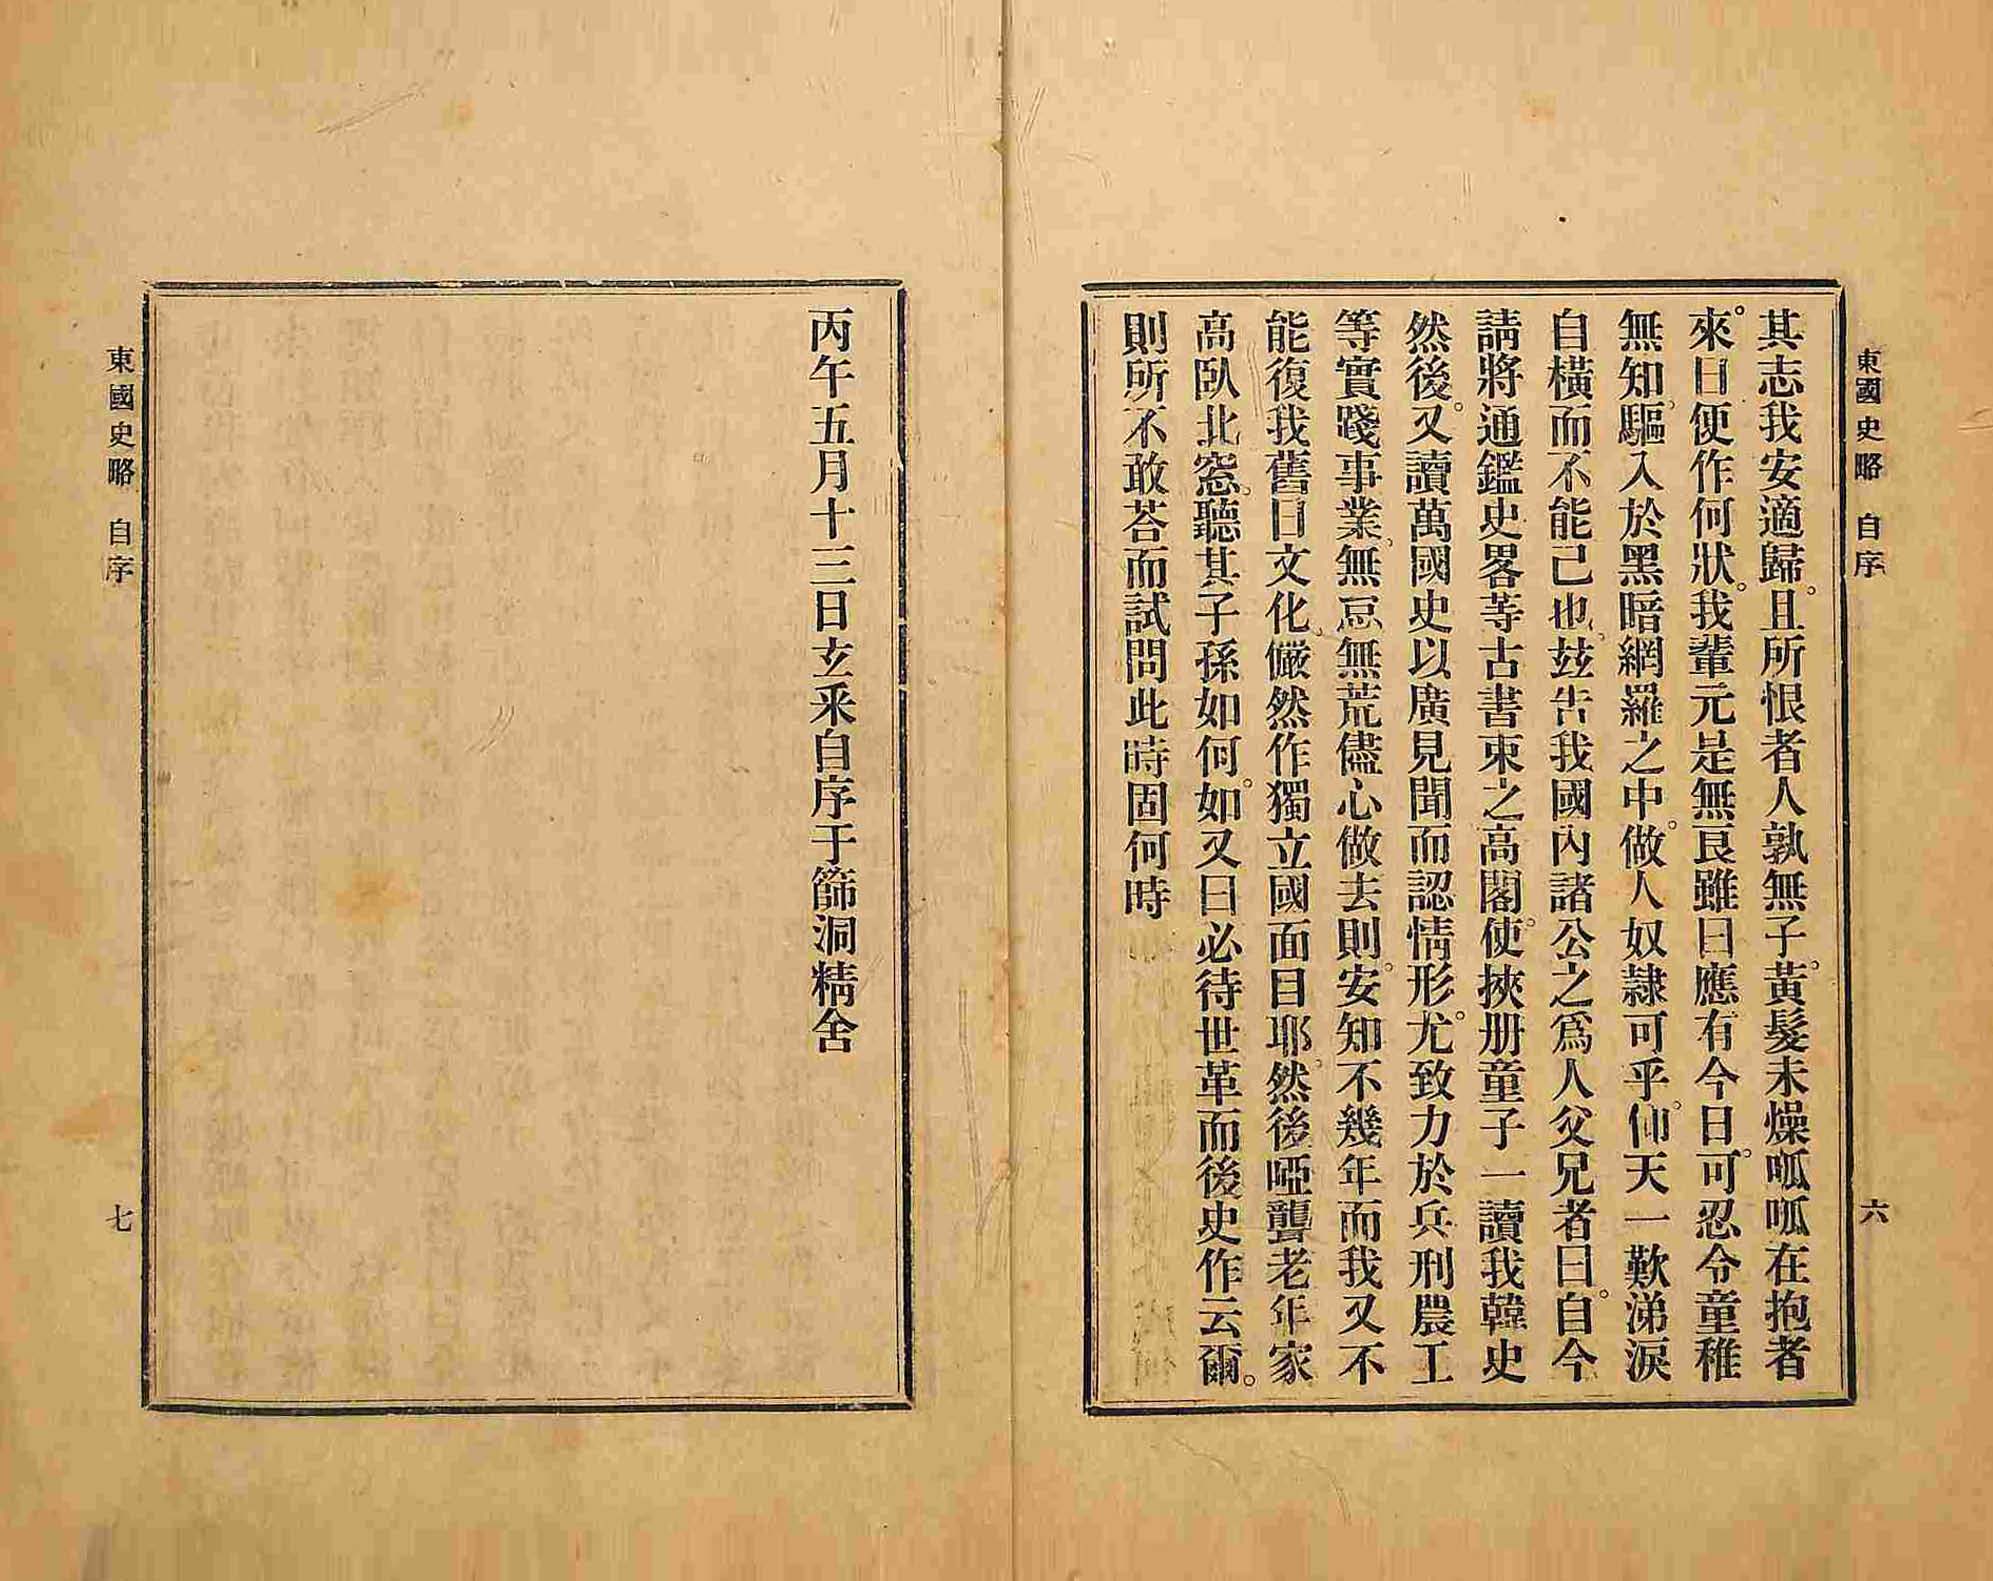 東國史略 自序
六
其志我安適歸。且所恨者人孰無子。黃髮未燥呱呱在抱者
來。日便作何狀。我輩元是無良雖曰應有今日。可忍令童稚
無知。驅入於黑暗網羅之中。做人奴隷可乎。仰天一歎涕淚
自橫而不能已也。玆告我國內諸公之爲人父兄者曰。自今
請將通鑑史畧等古書束之高閣。使挾册童子一讀我韓史
然後。又讀萬國史以廣見聞而認情形。尤致力於兵刑農工
等實踐事業。無怠無荒儘心做去則。安知不幾年而我又不
能復我舊日文化。儼然作獨立國面目耶。然後啞聾老年家
高臥北窓。聽其子孫如何。如又曰必待世革而後史作云爾。
則所不敢荅而試問此時固何時
丙午五月十三日玄采自序于篩洞精舍
東國史略 自序
七